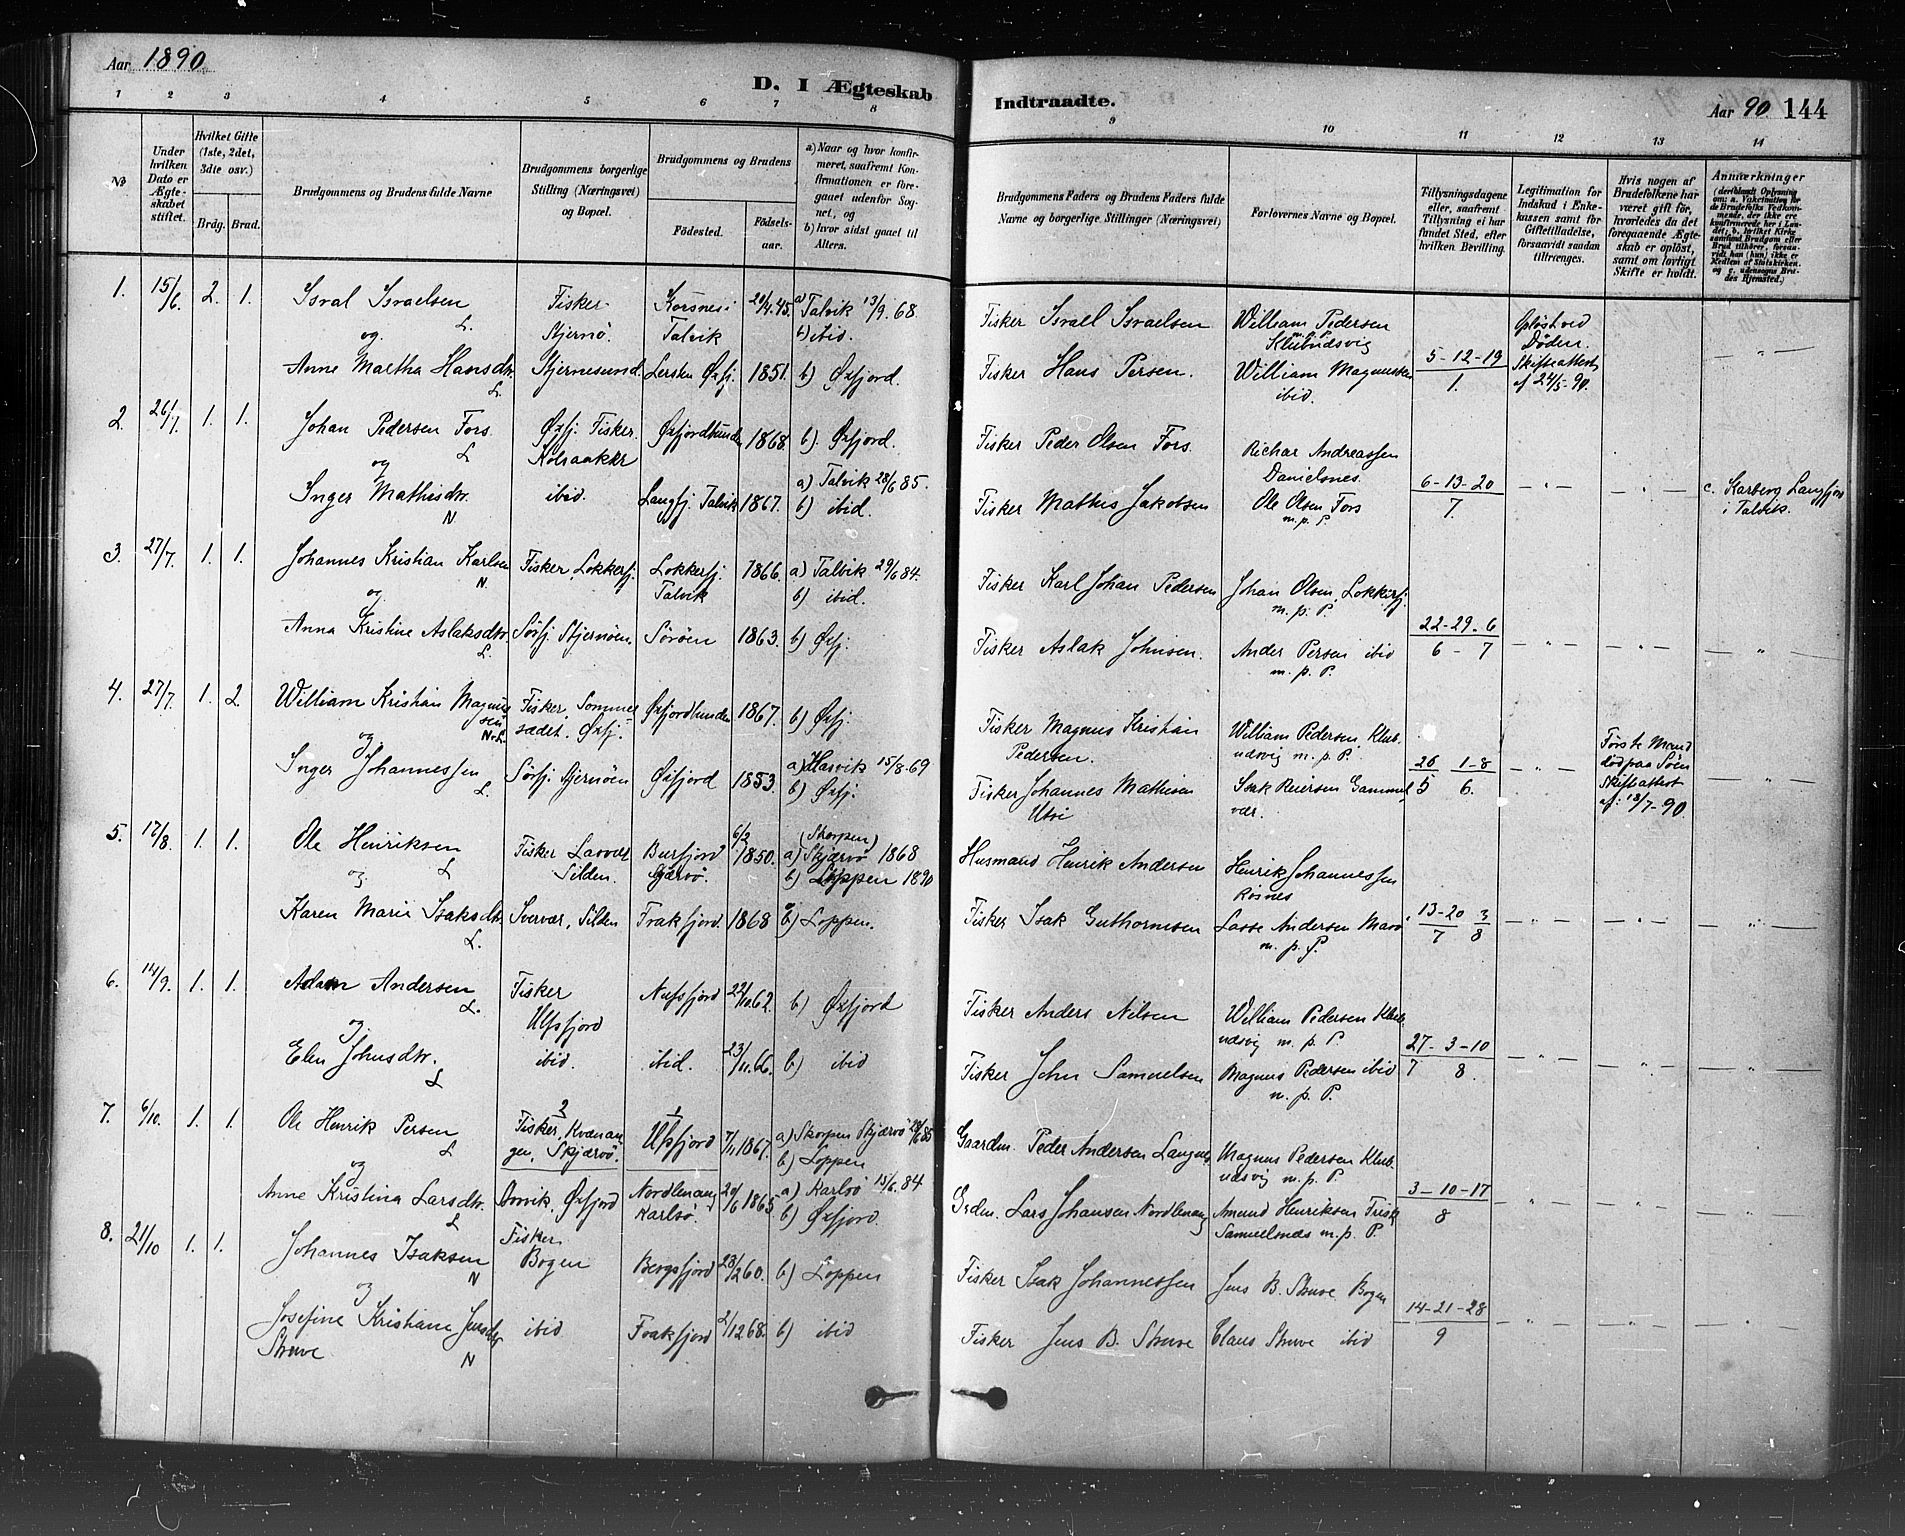 Aar 1890
D. I Ægteskab
1 2 3 4 5 6 7 8
No
Under hvilken Dato er Ægteskabet stiftet.
Hvilket Gifte (1ste, 2det, 3die osv.)
Brdg. Brud.
Brudgommens og Brudens fulde Navne
Brudgommens borgerlige Stilling (Næringsvei) og Bopæl.
Brudgommens og Brudens
Fødested. Fødselsaar.
a) Naar og hvor konfirmeret, saafremt Konfirmationen er foregaaet udenfor Sognet, og
b) hvor sidst gaaet til Alters.
1. 15/6. 2. 1. Isral Israelsen Fisker Korsnes i 20/4. 45. a) Talvik 13/9. 68.
og L. Stjernö. Talvik b) ibid.
Anne Martha Hansdtr. Stjernesund. Lersken Øxfj. 1851. b) Øxfjord.
L.
2. 26/7. 1. 1. Johan Pedersen Fors. Øxfj. Fisker. Øxfjordbunden 1868. b). Øxfjord.
og L Kolraakkr
Inger Mathisdtr. ibid. Langfj. Talvik 1867. a) Talvik 28/6 85.
N b) ibid.
3. 27/7. 1. 1. Johannes Kristian Karlsen Fisker, Lokkerfj. Lokkerfj. 1866. a) Talvik 29/6 84.
og N. Talvik b) ibid.
Anna Kristine Aslaksdtr. Sörfj. Stjernöen. Söröen 1863. b) Øxfj.
L.
4. 27/7. 1. 2. William Kristian Magnussen Fisker, Sommersædet. Øxfj. Øxfjordbunden 1867. b) Øxfj.
og N.L.
Inger Johannessen Sörfj. Stjernöen Øxfjord 1853. a) Hasvik 15/8. 69
L. b) Øxfj.
5. 17/8. 1. 1. Ole Henriksen Fisker Lavvær Burfjord 6/2 1850. (Skorpen) a) Skjærvö 1868
og L Silden. Skjærvö. b) Loppen 1890
Karen Marie Isaksdtr. Svervær, Silden Frakfjord. 1868 b) Loppen.
L.
6. 14/9. 1. 1. Adam Andersen Fisker Nufsfjord 22/10. 62. b) Øxfjord
og L. Ulfsfjord
Elen Johnsdtr. ibid. ibid. 23/11. 66. b) ibid
L
7. 6/10. 1. 1. Ole Henrik Persen Fisker, Kvænangen, Skjærvö. Ulfsfjord 7/11 1867. a) Skorpen Skjærvö 28/6 85
og L b) Loppen
Anne Kristina Larsdtr. Øxfjord Nordlenangen Karlsö. 20/6 1865. a) Karlsö 15/6. 84
L b) Øxfjord.
8. 21/10 1. 1. Johannes Isaksen Fisker Bogen Bergsfjord 23/12 60. b) Loppen
og N
Josefine Kristiane Jensdtr Struve ibid Frakfjord 2/12 68. b) ibid
N
Indtraadte.
Aar 90 144
9 10 11 12 13 14
Brudgommens Faders og Brudens Faders fulde Navne og borgerlige Stillinger (Næringsvei)
Forlovernes Navne og Bopæl.
Tillysningsdagene eller, saafremt Tillysning ei har fundet Sted, efter hvilken Bevilling.
Legitimation for Indskud i Enkekassen samt for Giftetilladelse, forsaavidt saadan tiltrænges.
Hvis nogen af Brudefolkene har været gift før, hvorledes da det foregaaende Ægteskab er opløst, samt om lovligt Skifte er holdt.
Anmærkninger
(deriblandt Oplysning om: a. Vakcination for de Brudefolks Vedkommende, der ikke ere konfirmerede her i Landet; b. hvilket Kirkesamfund Brudgom eller Brud tilhører, forsaavidt han (hun) ikke er Medlem af Statskirken, og c. udensogns Brudes Hjemsted.)
Fisker Israel Israelsen William Pedersen m. p. P. Klubudsvig Opløst ved Döden.
Fisker Hans Persen. William Magnussen ibid. 5-12-19 / 1. Skifteattest af 24/5-90. - " -
Fisker Peder Olsen Fors. Richar Andreassen Danielsnes.
Fisker Mathis Jakobsen Ole Olsen Fors m. p. P. 6-13-20 / 7. - " - - " - c. Karberg Langfjord i Talvik.
Fisker Karl Johan Pedersen Johan Olsen Lokkerfj. m. p. P.
Fisker Aslak Johnsen. Ander Persen ibid m. p. P. 22-29-6 / 6 - 7 - " - - " - - " -
Fisker Magnus Kristian Pedersen. William Pedersen, Klubudsvig m. p. P.
Fisker Johannes Mathisen Utsi Isak Reiersen Gammelvær. 26 1-8 / 5 6. - " - Første Mand död paa Söen Skifteattest af: 18/7-90. - " -
Husmand Henrik Andersen Henrik Johannessen Rosnes
Fisker Isak Guthormsen Lasse Andersen m. p. P. 13-20 3 / 7 8 - " - - " - - " -
Fisker Anders Nilsen William Pedersen Klubudsvig m. p. P.
Fisker John Samuelsen Magnus Pedersen ibid m. p. P. 27-3-10 / 7 8. - " - - " - - " -
Gaardm. Peder Andersen Langnes Magnus Pedersen Klubudsvig m. p. P
Grdm. Lars Johansen Nordlenang Amund Henriksen Fisk. Samuelsnes m. p. P. 3-10-17 / 8 - " - - " - - " -
Fisker Isak Johannessen Jens B. Struve Bogen
Fisker Jens B. Struve Claus Struve ibid 14-21-28 / 9 - " - - " - - " -